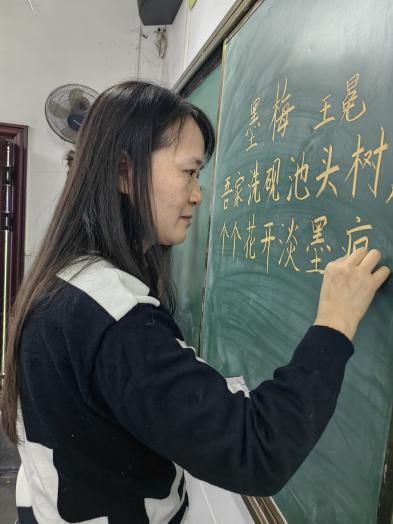 墨梅 王冕
吾家洗砚池头树,
个个花开淡墨